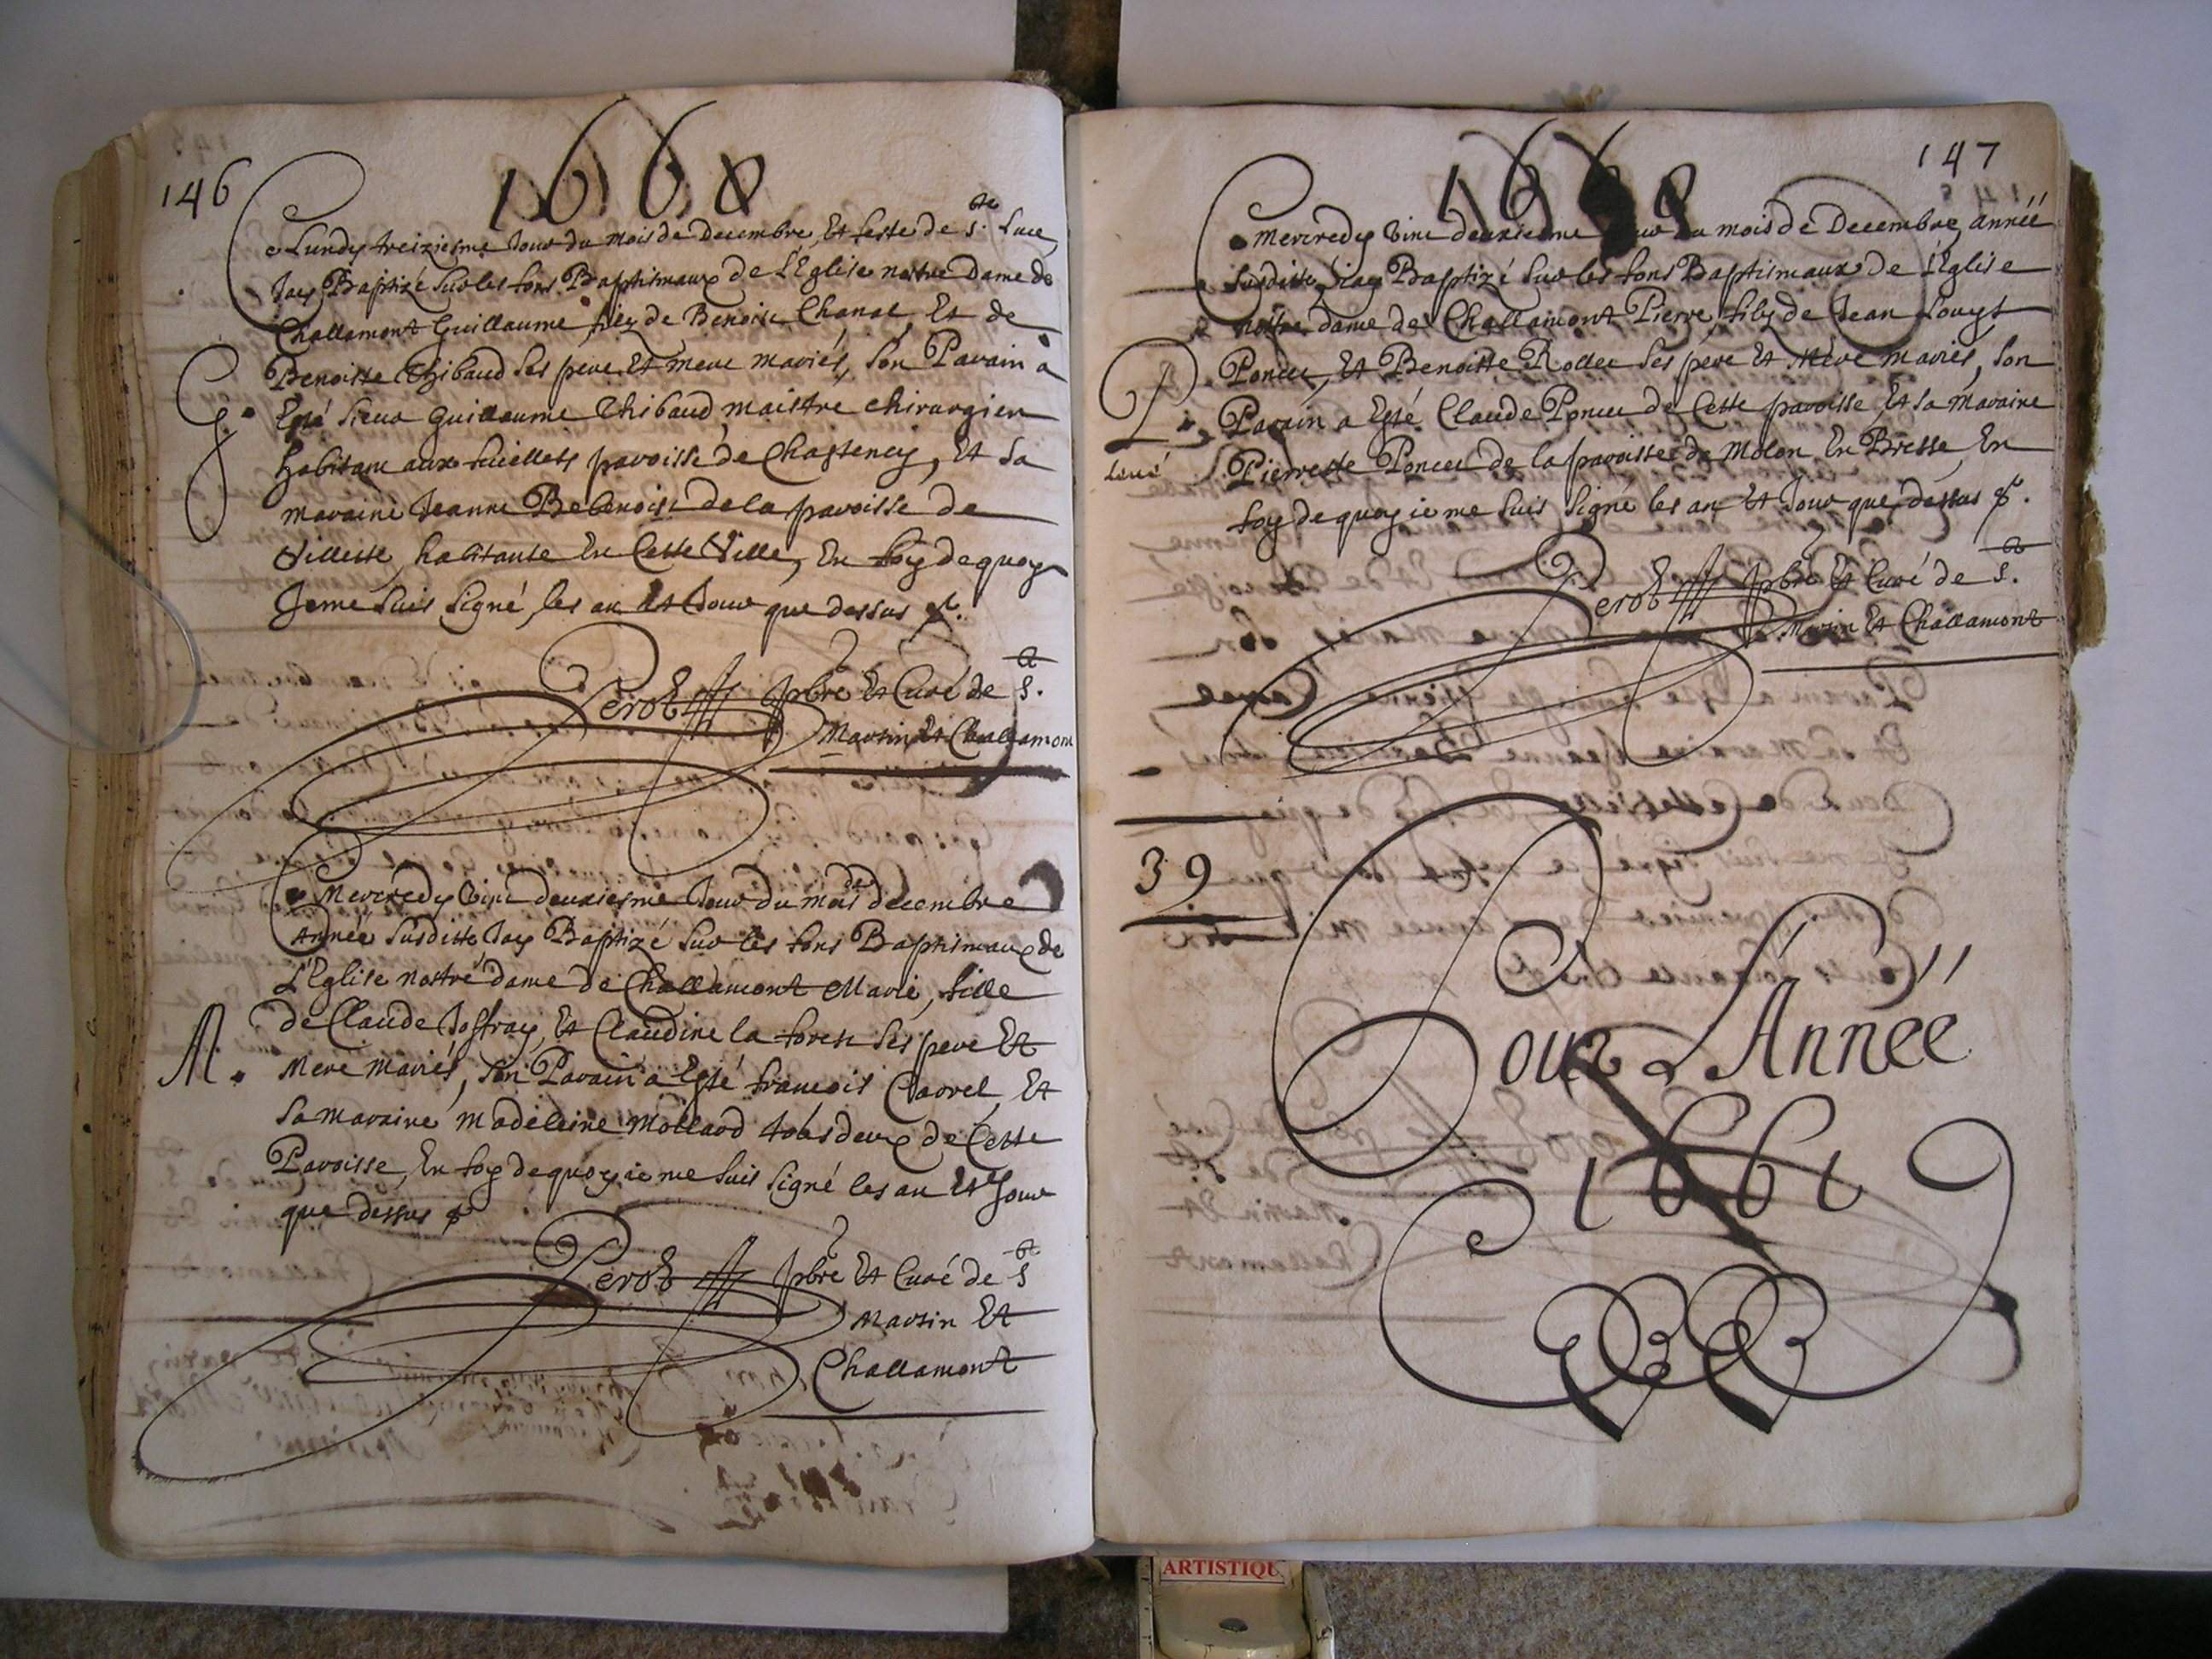 146
1660
Ce Lundy treiziesme Jour du mois de Decembre, et feste de Ste. Luce,
Jay Baptizé sur les fons Baptismaux de L'Eglise nostre Dame de
Challamont Guillaume, filz de Benoist Chanal, Et de
Benoiste Thibaud ses pere et mere mariés, son Parain a
G.
Esté sieur Guillaume Thibaud, maistre chirurgien
habitant aux paroisse de Chastenay, Et sa
maraine Jeanne de la paroisse de
Villette, habitante En Cette Ville, En foy de quoy
Je me suis signé, les an Et Jour que dessus &.
Perot pbre Et Curé de St.
Martin Et Challamont
Ce Mercredy Vint deuxiesme Jour du mois de decembre
Année susditte Jay Baptizé sur les fons Baptismaux de
L'Eglise nostre dame de Challamont Marie, fille
de Claude Joffray, Et Claudine la forest ses pere Et
M.
Mere mariés, son Parain a Esté francois Carrel, Et
sa maraine Madeleine Mollard tous deux de Cette
Paroisse, En foy de quoy ie me suis signé les an Et Jour
que dessus &
Perot pbre Et Curé de St
Martin Et
Challamont
147
1660
Ce Mercredy Vint deuxiesme Jour du mois de Decembre, année
susditte, iay Baptizé sur les fons Baptismaux de l'Eglise
nostre dame de Challamont Pierre, filz de Jean Louys
P.
Poncet, Et Benoitte Rollet ses pere Et Mere mariés, son
Parain a Esté Claude Poncet de Cette paroisse, Et sa maraine
Pierrette Poncet de la paroisse de Molon En Bresse, En
foy de quoy ie me suis signé les an Et Jour que dessus &.
Perot pbre Et Curé de St.
Martin Et Challamont
39
Pour L'Année
1661